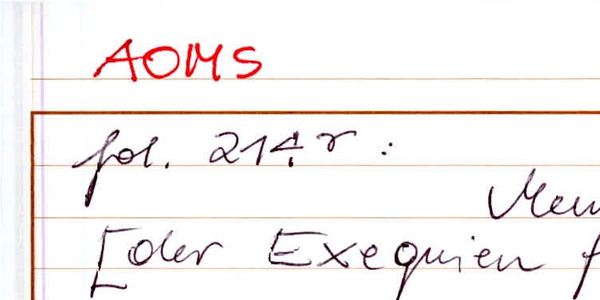 AOMS
fol. 214r :
[der Exequien f